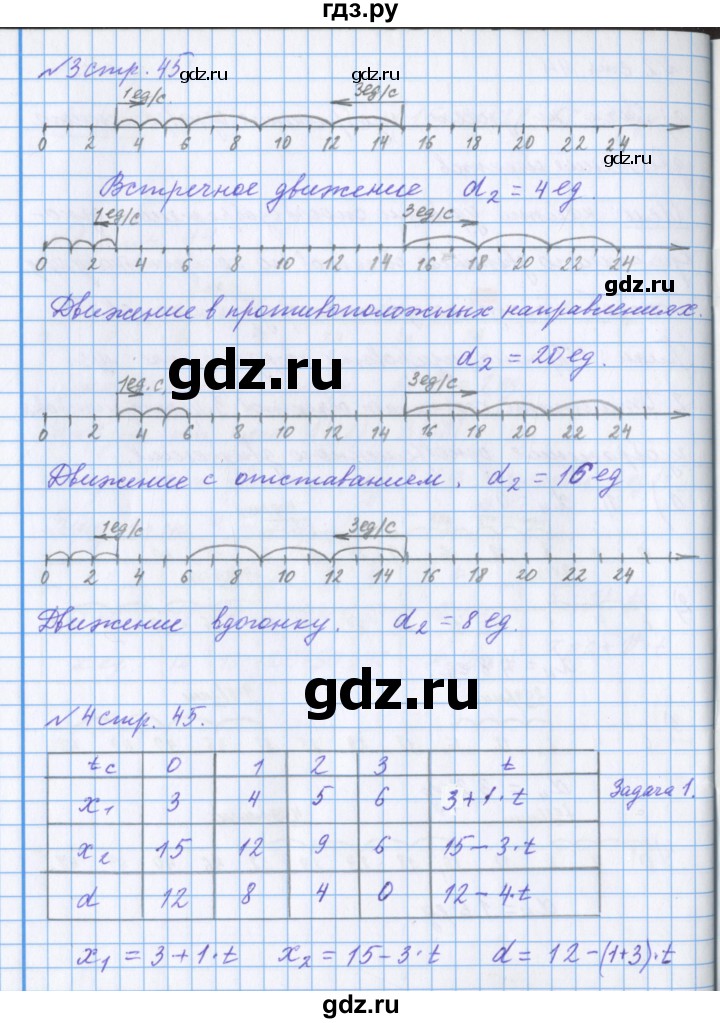 гдз.ру
№3 стр. 45
gdz.ru gdz.ru
1ед/с 3ед/с
0 2 4 6 8 10 12 14 16 18 20 22 24
gdz.ru
Встречное движение d₂ = 4 ед.
1ед/с 3ед/с
0 2 4 6 8 10 12 14 16 18 20 22 24
gdz.ru
Движение в противоположных направлениях.
d₂ = 20 ед.
gdz.ru
1ед.с 3ед/с
0 2 4 6 8 10 12 14 16 18 20 22 24
Движение с отставанием. d₂ = 16 ед
1ед/с 3ед/с
0 2 4 6 8 10 12 14 16 18 20 22 24
Движение вдогонку. d₂ = 8 ед.
gdz.ru
№4 стр. 45.
t с 0 1 2 3 t
x₁ 3 4 5 6 3+1·t Задача 1.
x₂ 15 12 9 6 15-3·t
d 12 8 4 0 12-4·t
x₁ = 3+1·t x₂ = 15-3·t d = 12-(1+3)·t
gdz.ru